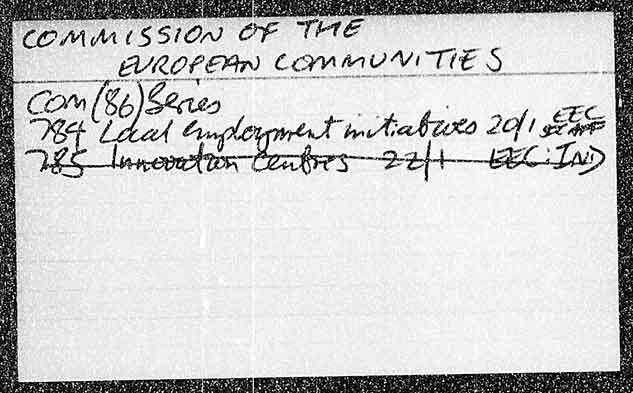 COMMISSION OF THE
EUROPEAN COMMUNITIES
COM (86) Series
784 Local employment initiatives 20/1 EEC
785 Innovation Centres 22/1 EEC: IND